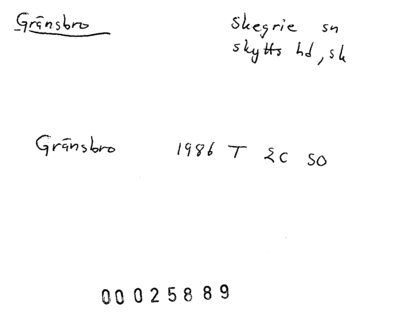 Gränsbro Skegrie sn
skytts hd, sk
Gränsbro 1986 T 2C SO
00025889